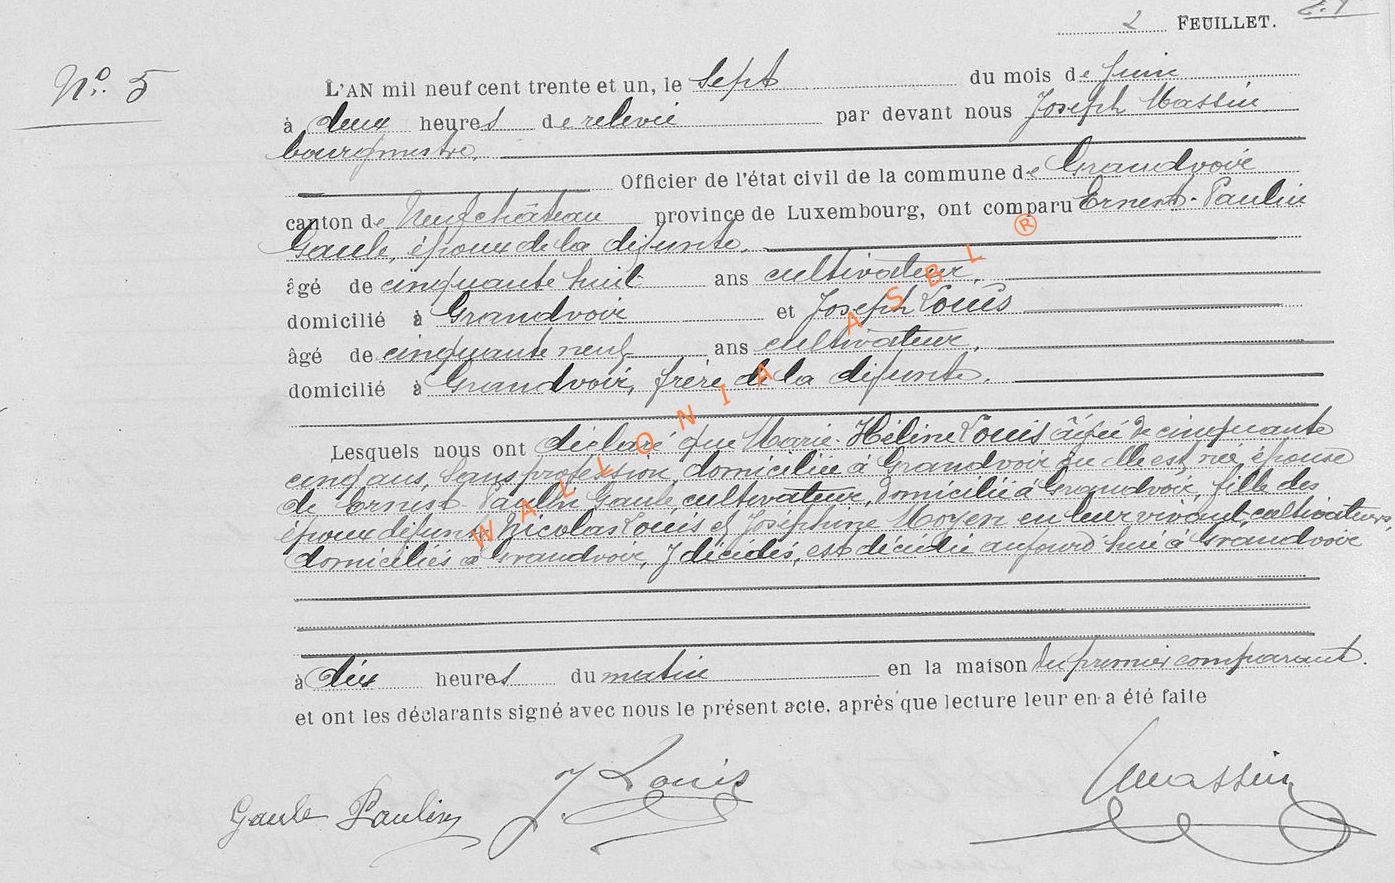 2 FEUILLET.
N° 5
L'AN mil neuf cent trente et un, le sept du mois de Juin
à deux heures de relevée par devant nous Joseph Massin
bourgmestre,
Officier de l'état civil de la commune de Grandvoir
canton de Neufchâteau province de Luxembourg, ont comparu Ernest-Paulin
Gaule, époux de la défunte,
âgé de cinquante huit ans cultivateur,
domicilié à Grandvoir et Joseph Louis
âgé de cinquante neuf ans cultivateur,
domicilié à Grandvoir, frère de la défunte,
Lesquels nous ont déclaré que Marie-Hélène Louis âgée de cinquante
cinq ans, sans profession, domiciliée à Grandvoir où elle est née, épouse
de Ernest-Paulin Gaule, cultivateur, domicilié à Grandvoir, fille des
époux défunts Nicolas Louis et Joséphine Moyen en leur vivant, cultivateurs,
domiciliés à Grandvoir, y décédés, est décédée aujourd'hui à Grandvoir
à dix heures du matin en la maison du premier comparant.
et ont les déclarants signé avec nous le présent acte, après que lecture leur en a été faite
Gaule Paulin J Louis Massin
WALLONIA ASBL ®